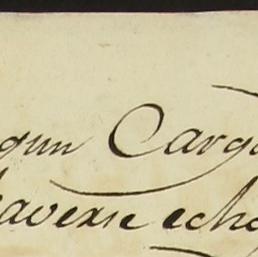 gun Carg
haverse echa